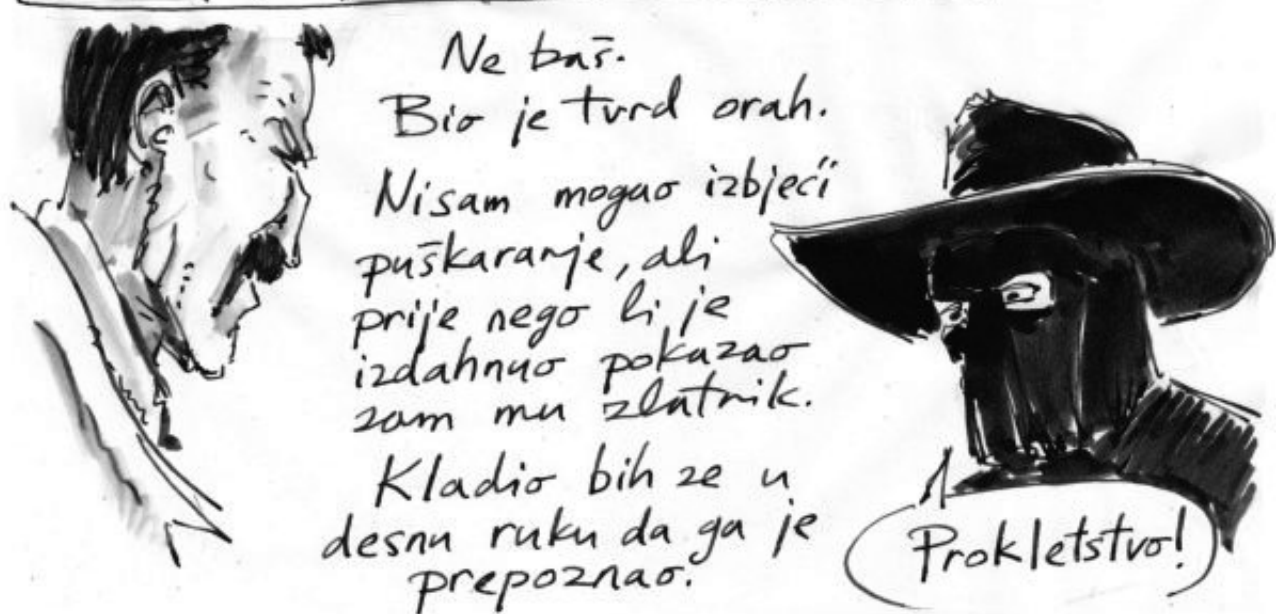 Ne baš.
Bio je tvrd orah.
Nisam mogao izbjeći
puškaranje, ali
prije nego li je
izdahnuo pokazao
sam mu zlatnik.
Kladio bih se u
desnu ruku da ga je
prepoznao.
Prokletstvo!